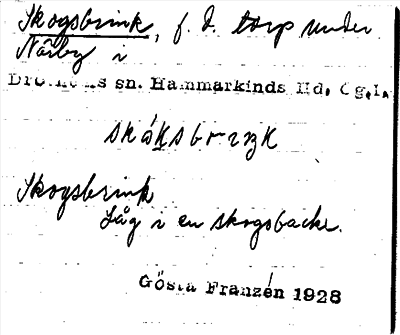 Skogsbrink, f. d. torp under
Närby i
Drothems sn. Hammarkinds Hd, Ög.l.
skáksbriŋk
Skogsbrink
Låg i en skogsbacke.
Gösta Franzén 1928